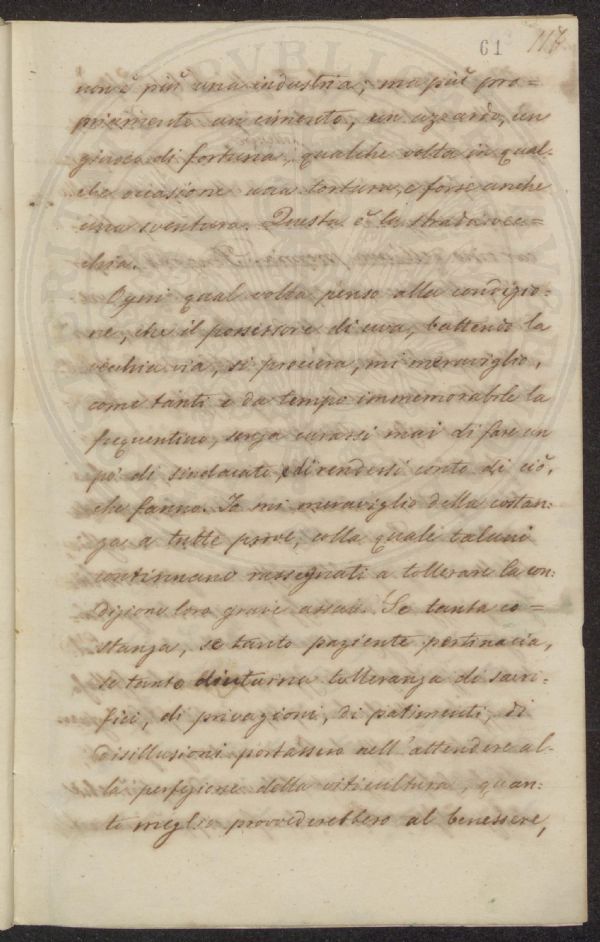 61 117
non è più una industria; ma più pro=
priamente un cimento, un azzardo, un
giuoco di fortuna, qualche volta in qual-
che occasione una tortura, e forse anche
una sventura. Questa è la strada vec=
chia.
Ogni qual volta penso alla condizio=
ne, che il possessore di uva, battendo la
vecchia via, si procura, mi meraviglio,
come tanti e da tempo immemorabile la
frequentino, senza curarsi mai di fare un
po' di sindacato, e di rendersi conto di ciò,
che fanno. Io mi meraviglio della costan=
za a tutte prove, colla quale taluni
continuano rassegnati a tollerare la con=
dizione loro grave assai. Se tanta co=
stanza, se tanto paziente pertinacia,
se tante diuturna tolleranza di sacri=
fici, di privazioni, di patimenti, di
disillusioni portassero nell'attendere al-
la perfezione della viticultura, quan=
to meglio provvederebbero al benessere,